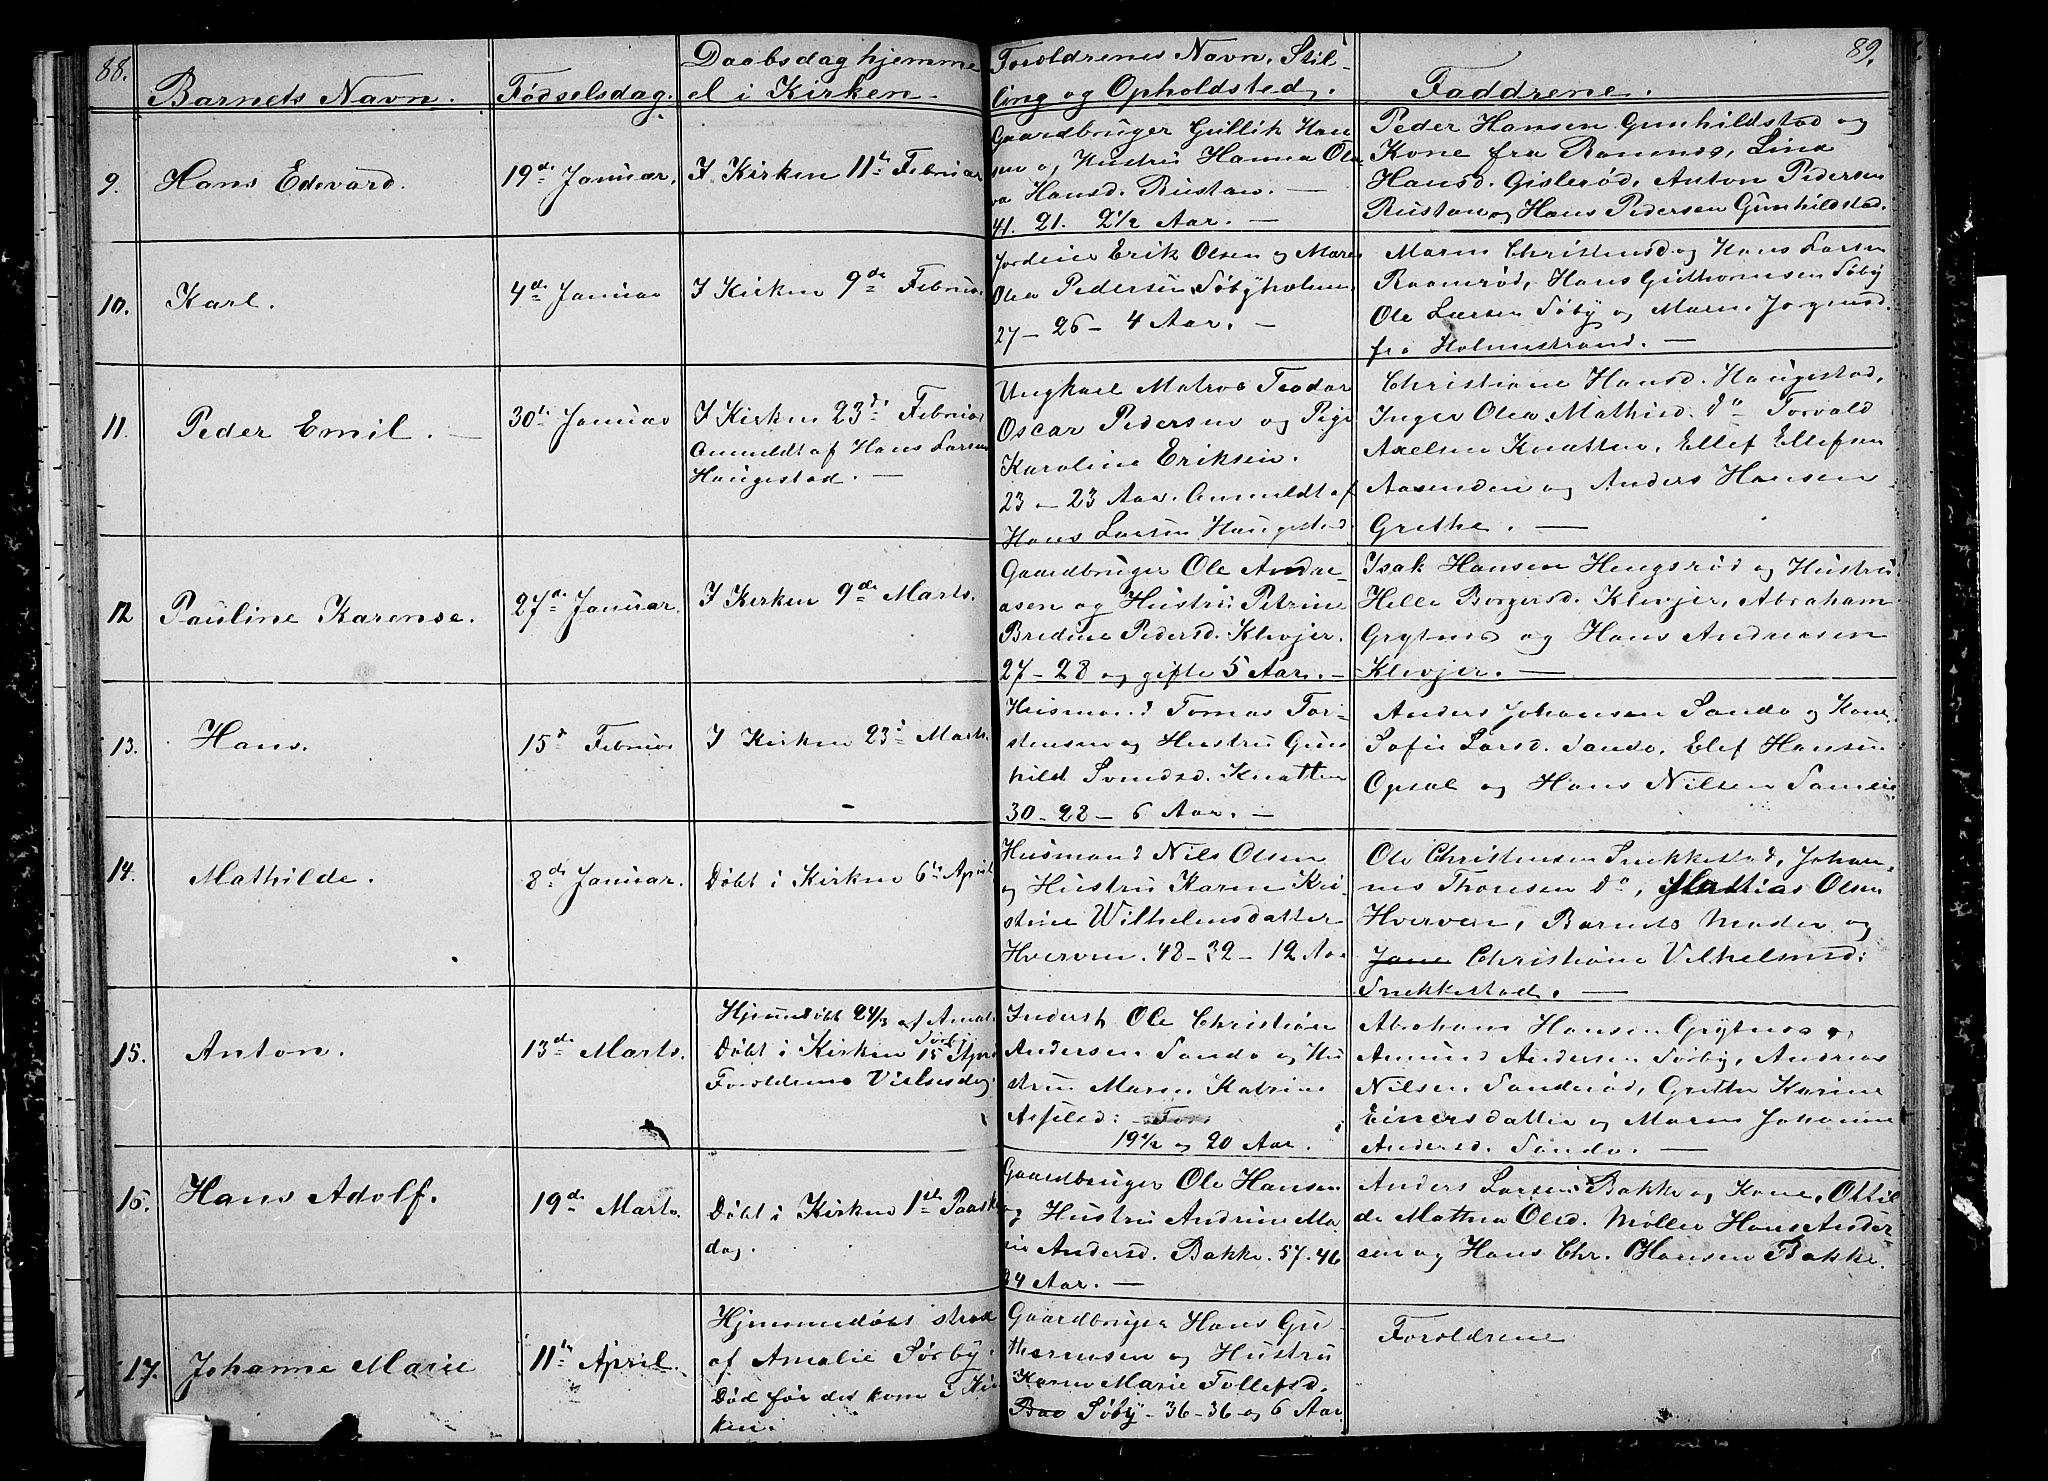 88.
Barnets Navn.
Fødselsdag.
Daabsdag hjemme
el i Kirken.
Forældrenes Navn, Stil-
ling og Opholdsted.
Faddrene.
89.
9.
Hans Edevard.
19de Januar.
I Kirken 11te Februar
Gaardbruger Gullik Han
sen og Hustru Hanna Ole
va Hansd. Rustan. —
41. 21. 2 1/2 Aar. —
Peder Hansen Gunhildstad og
Kone fra Ramnes, Lina
Hansd. Gislerød, Anton Pedersen
Rustan og Hans Pedersen Gunhildstad.
10.
Karl.
4de Januar
I Kirken 9de Februar
Erik Olsen og Maren
Olea Pedersen Søbyholmen
27 – 26 – 4 Aar. —
Maren Christensd og Hans Larsen
Raamerød, Hans Guthormsen Søby
Ole Larsen Søby og Maren Jørgensd.
fra Holmestrand. —
11.
Peder Emil. —
30te Januar
I Kirken 23de Februar
Anmeldt af Hans Larsen
Haugestad. —
Ungkarl Matros Teodor
Oscar Pedersen og Pige
Karoline Eriksen.
23 – 23 Aar. Anmeldt af
Hans Larsen Haugestad.
Christiane Hansd. Haugestad,
Inger Olea Mathisd. do Torvald
Axelsen Knatten, Ellef Ellefsen
Aasenden og Anders Hansen
Grethe. —
12
Pauline Karense.
27de Januar.
I Kirken 9de Marts.
Gaardbruger Ole Andre-
asen og Hustru Petrine
Bredine Pedersd. Klevjer.
27 – 28 og gifte 5 Aar. –
Isak Hansen Hengsrød og Hustru
Helle Borgersd. Klevjer, Abraham
Grytnes og Hans Andreasen
Klevjer. —
13.
Hans.
15d Februar
I Kirken 23d Marts.
Husmand Tomas Tor-
stensen og Hustru Gun
hild Svendsd. Knatten
30 – 28 – 6 Aar. —
Anders Johansen Sando og Kone
Sofie Larsd. Sando, Elef Hansen
Opsal og Hans Nilsen
14.
Mathilde.
8de Januar.
Døbt i Kirken 6te April
Husmand Nils Olsen
og Hustru Karen Kri-
stine Wilhelmsdatter
Hverven. 48 – 32 – 12 Aar
Ole Christensen Snekkestad, Johan-
nes Thonsen do, Mathias Olsen
Hverven, Barnets Moder og
Jane Christiane Vilhelmsd:
Snekkestad. —
15.
Anton.
13de Marts.
Hjemmedøbt 24/3 af Amalie
Sørby
Døbt i Kirken 15 April
Forældrenes Vielsesdag.
Inderst Ole Christian
Andersen Sando og Hu
stru Maren Katrine
19 1/2 og 20 Aar.
Abraham Hansen Grytnes og
Amund Andersen Sørby, Andreas
Nilsen Sanderød, Grethe Karine
Einersdatter og Maren Johanne
Andersd. Sando. —
16.
Hans Adolf.
19de Marts.
Døbt i Kirken 1ste Paaske
dag.
Gaardbruger Ole Hansen
og Hustru Andrine Ma-
rie Andersd. Bakke. 57. 46
24 Aar. —
Anders Larsen Bakke og Kone, Ottil
de Mathea Olsd. Møller Hans Ander-
sen og Hans Chr. Hansen Bakke.
17.
Johanne Marie
11te April.
Hjemmedøbt strax
af Amalie Sørby.
Død før det kom i Kir
ken.
Gaardbruger Hans Gu-
thormsen og Hustru
Karen Marie Tollefsd.
Søby – 36 – 36 og 6 Aar.
Forældrene